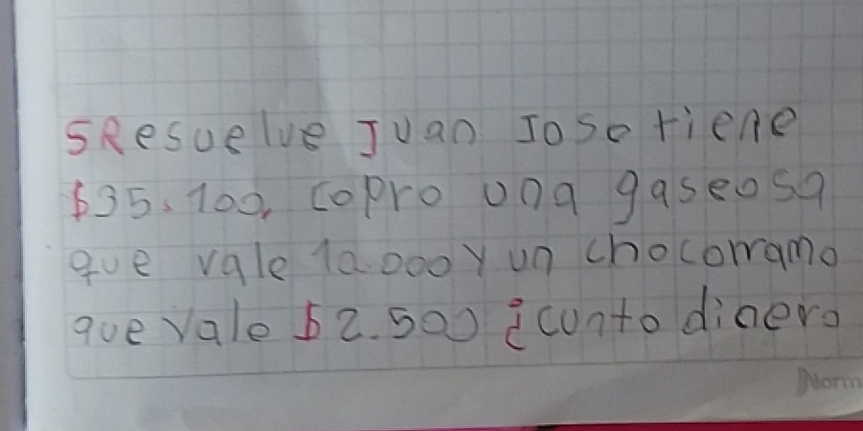 5Resuelve Juan Jose tiene
$35.100, copro una gaseosa
que vale 10.000 y un chocorramo
que vale $2.500 ¿cunto dinero
Norm